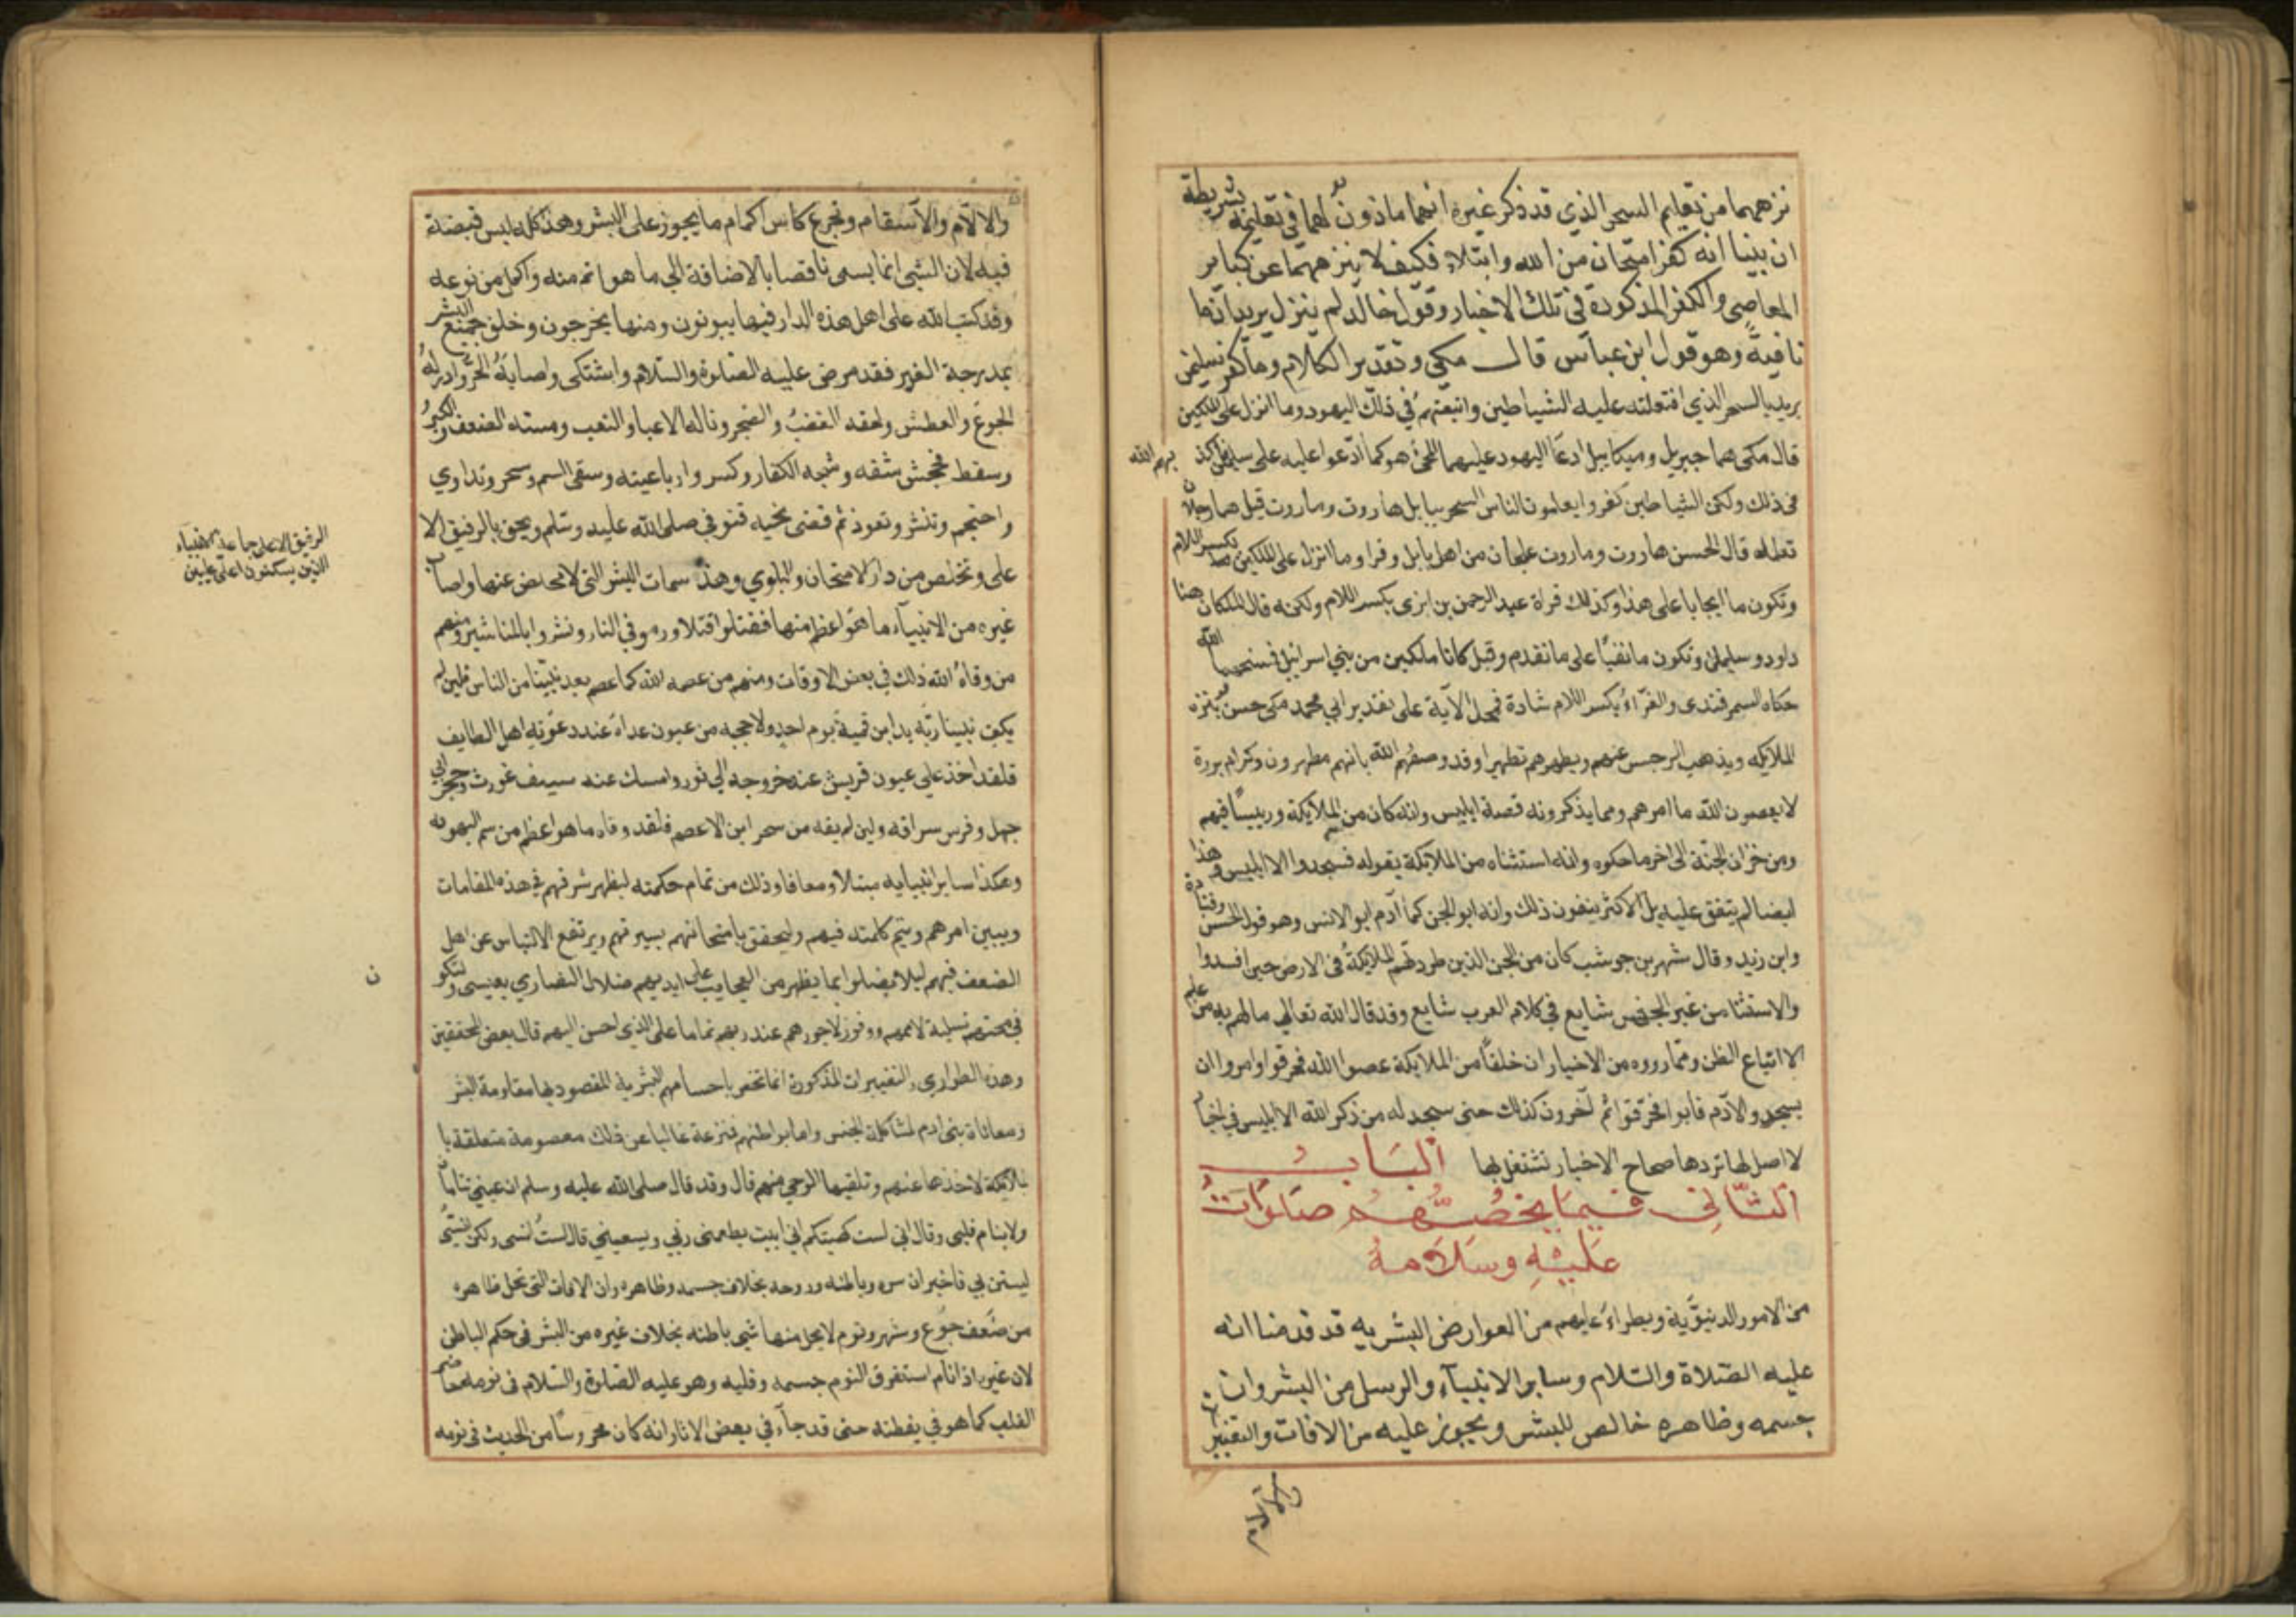 نزههما من تعليم السحر الذي قد ذكر غيره انهما ماذون لهما في تعليمه بشريطة
ان بينا انه كفر امتحان من الله وابتلاء فكيف لا ينزههما عن كباير
المعاصى والكفر المذكورة في تلك الاخبار وقول خالد لم ينزل يريد ان ما
نافية وهو قول ابن عباس قال مكى وتقدير الكلام وما كفر سليمن
يريد بالسحر الذي افتعلته عليه الشياطين واتبعتهم في ذلك اليهود وما انزل على الملكين
قال مكى هما جبريل وميكاييل ادعا اليهود عليهما المجئ به كما ادعوا عليه على سليمن فاكذ
بهم الله
فى ذلك ولكن الشياطين كفروا يعلمون الناس السحر ببابل هاروت وماروت قيل هما رجلان
تعلماه قال الحسن هاروت وماروت علجان من اهل بابل وقرا وما انزل على الملكين بكسر اللام
وتكون ما ايجابا على هذا وكذلك قراة عبد الرحمن بن ابزى بكسر اللام ولكنه قال الملكان هنا
داود وسليمن وتكون ما نفيا على ما تقدم وقيل كانا ملكين من بني اسرائيل فمسخهما الله
حكاه السمرقندى والقراءة بكسر اللام شاذة فمحل الآية على تقدير ابي محمد مكى حسن ينزه
الملايكه ويذهب الرجس عنهم ويطهرهم تطهيرا وقد وصفهم الله بانهم مطهرون وكرام بررة
لا يعصون الله ما امرهم ومما يذكرونه قصة ابليس وانه كان من الملايكة ورييسا فيهم
ومن خزان الجنة الى اخر ما حكوه وانه استثناه من الملايكة بقوله فسجدوا الا ابليس وهذا
ايضا لم يتفق عليه بل الاكثر ينفون ذلك وانه ابو الجن كما آدم ابو الانس وهو قول الحسن وقتادة
وابن زيد وقال شهر بن حوشب كان من الجن الذين طردتهم الملايكة فى الارض حين افسدوا
والاستثنا من غير الجنس شايع في كلام العرب شايع وقد قال الله تعالى ما لهم به من علم
الا اتباع الظن ومما رووه من الاخبار ان خلقا من الملايكة عصوا الله فحرقوا وامروا ان
يسجدوا لآدم فابوا فحرقوا ثم آخرون كذلك حتى سجد له من ذكر الله الا ابليس في اخبا
لا اصل لها تردها صحاح الاخبار نشتغل بها الباب
الثاني فيما يخصهم صلوات
عليه وسلامه
من الامور الدنيوية ويطراء عليهم من العوارض البشريه قد قدمنا انه
عليه الصلاة والسلام وساير الانبيآء والرسل من البشر وان
جسمه وظاهره خالص للبشر ويجوز عليه من الافات والتغييرات
والالآم والاسقام وتجرع كاس الحمام ما يجوز على البشر وهذا كله ليس بنقيصة
فيه لان الشى انما يسمى ناقصا بالاضافة الى ما هو اتم منه واكمل من نوعه
وقد كتب الله على اهل هذه الدار فيها يموتون ومنها يخرجون وخلق جميع البشر
بمدرجة الغير فقد مرض عليه الصلوة والسلام واشتكى واصابه الحر وادركه
الجوع والعطش ولحقه الغضب والضجر وناله الاعيا والتعب ومسه الضعف والكبر
وسقط فجحش شقه وشجه الكفار وكسروا رباعيته وسقى السم وسحر وتداوي
واحتجم وتنشر وتعوذ ثم قضى نحبه فتوفي صلى الله عليه وسلم ولحق بالرفيق الا
على وتخلص من دار الامتحان والبلوي وهذه سمات البشر التي لا محيص عنها واصاب
الرفيق الاعلى جماعة الانبياء
الذين يسكنون اعلى عليين
غيره من الانبيآء ما هو اعظم منها فقتلوا قتلا ورموا في النار ونشروا بالمناشير ومنهم
من وقاه الله ذلك في بعض الاوقات ومنهم من عصمه الله كما عصم بعد نبينا من الناس فلين لم
يكف نبينا ربه يد ابن قميئة يوم احد ولا حجبه من عيون عداه عند دعوته اهل الطايف
فلقد اخذ على عيون قريش عند خروجه الي ثور وامسك عنه سيف غورث وحجر ابي
جهل وفرس سراقه ولين لم يقه من سحر ابن الاعصم فلقد وقاه ما هو اعظم من سم اليهوديه
وهكذا ساير انبيايه مبتلا ومعافا وذلك من تمام حكمته ليظهر شرفهم في هذه المقامات
ويبين امرهم وتتم كلمته فيهم وليحقق بامتحانهم بشريتهم ويرتفع الالتباس عن اهل
الضعف فيهم ليلا يضلوا بما يظهر من العجايب على ايديهم ضلال النصاري بعيسى ولتكون
في محنهم تسلية لاممهم ووفور لاجورهم عند ربهم تماما على الذي احسن اليهم قال بعض المحققين
وهذه الطواري والتغييرات المذكورة انما تختص باجسامهم البشرية المقصود بها مقاومة البشر
ومعاناة بني ادم لمشاكلة الجنس واما بواطنهم فمنزهة غالبا عن ذلك معصومة متعلقة با
لملايكة لاخذها عنهم وتلقيها الوحي منهم قال وقد قال صلى الله عليه وسلم ان عيني تنامان
ولا ينام قلبى وقال اني لست كهيئتكم اني ابيت يطعمني ربي ويسقيني وقال لست انسى ولكن انسى
ليستن بي فاخبر ان سره وباطنه وروحه بخلاف جسمه وظاهره وان الافات التى تحل ظاهره
من ضعف جوع وسهر ونوم لا يحل منها شى باطنه بخلاف غيره من البشر فى حكم الباطن
لان غيره اذا نام استغرق النوم جسمه وقلبه وهو عليه الصلوة والسلام فى نومه حاضر
القلب كما هو في يقظته حتى قد جآء في بعض الاثار انه كان محروسا من الحدث فى نومه